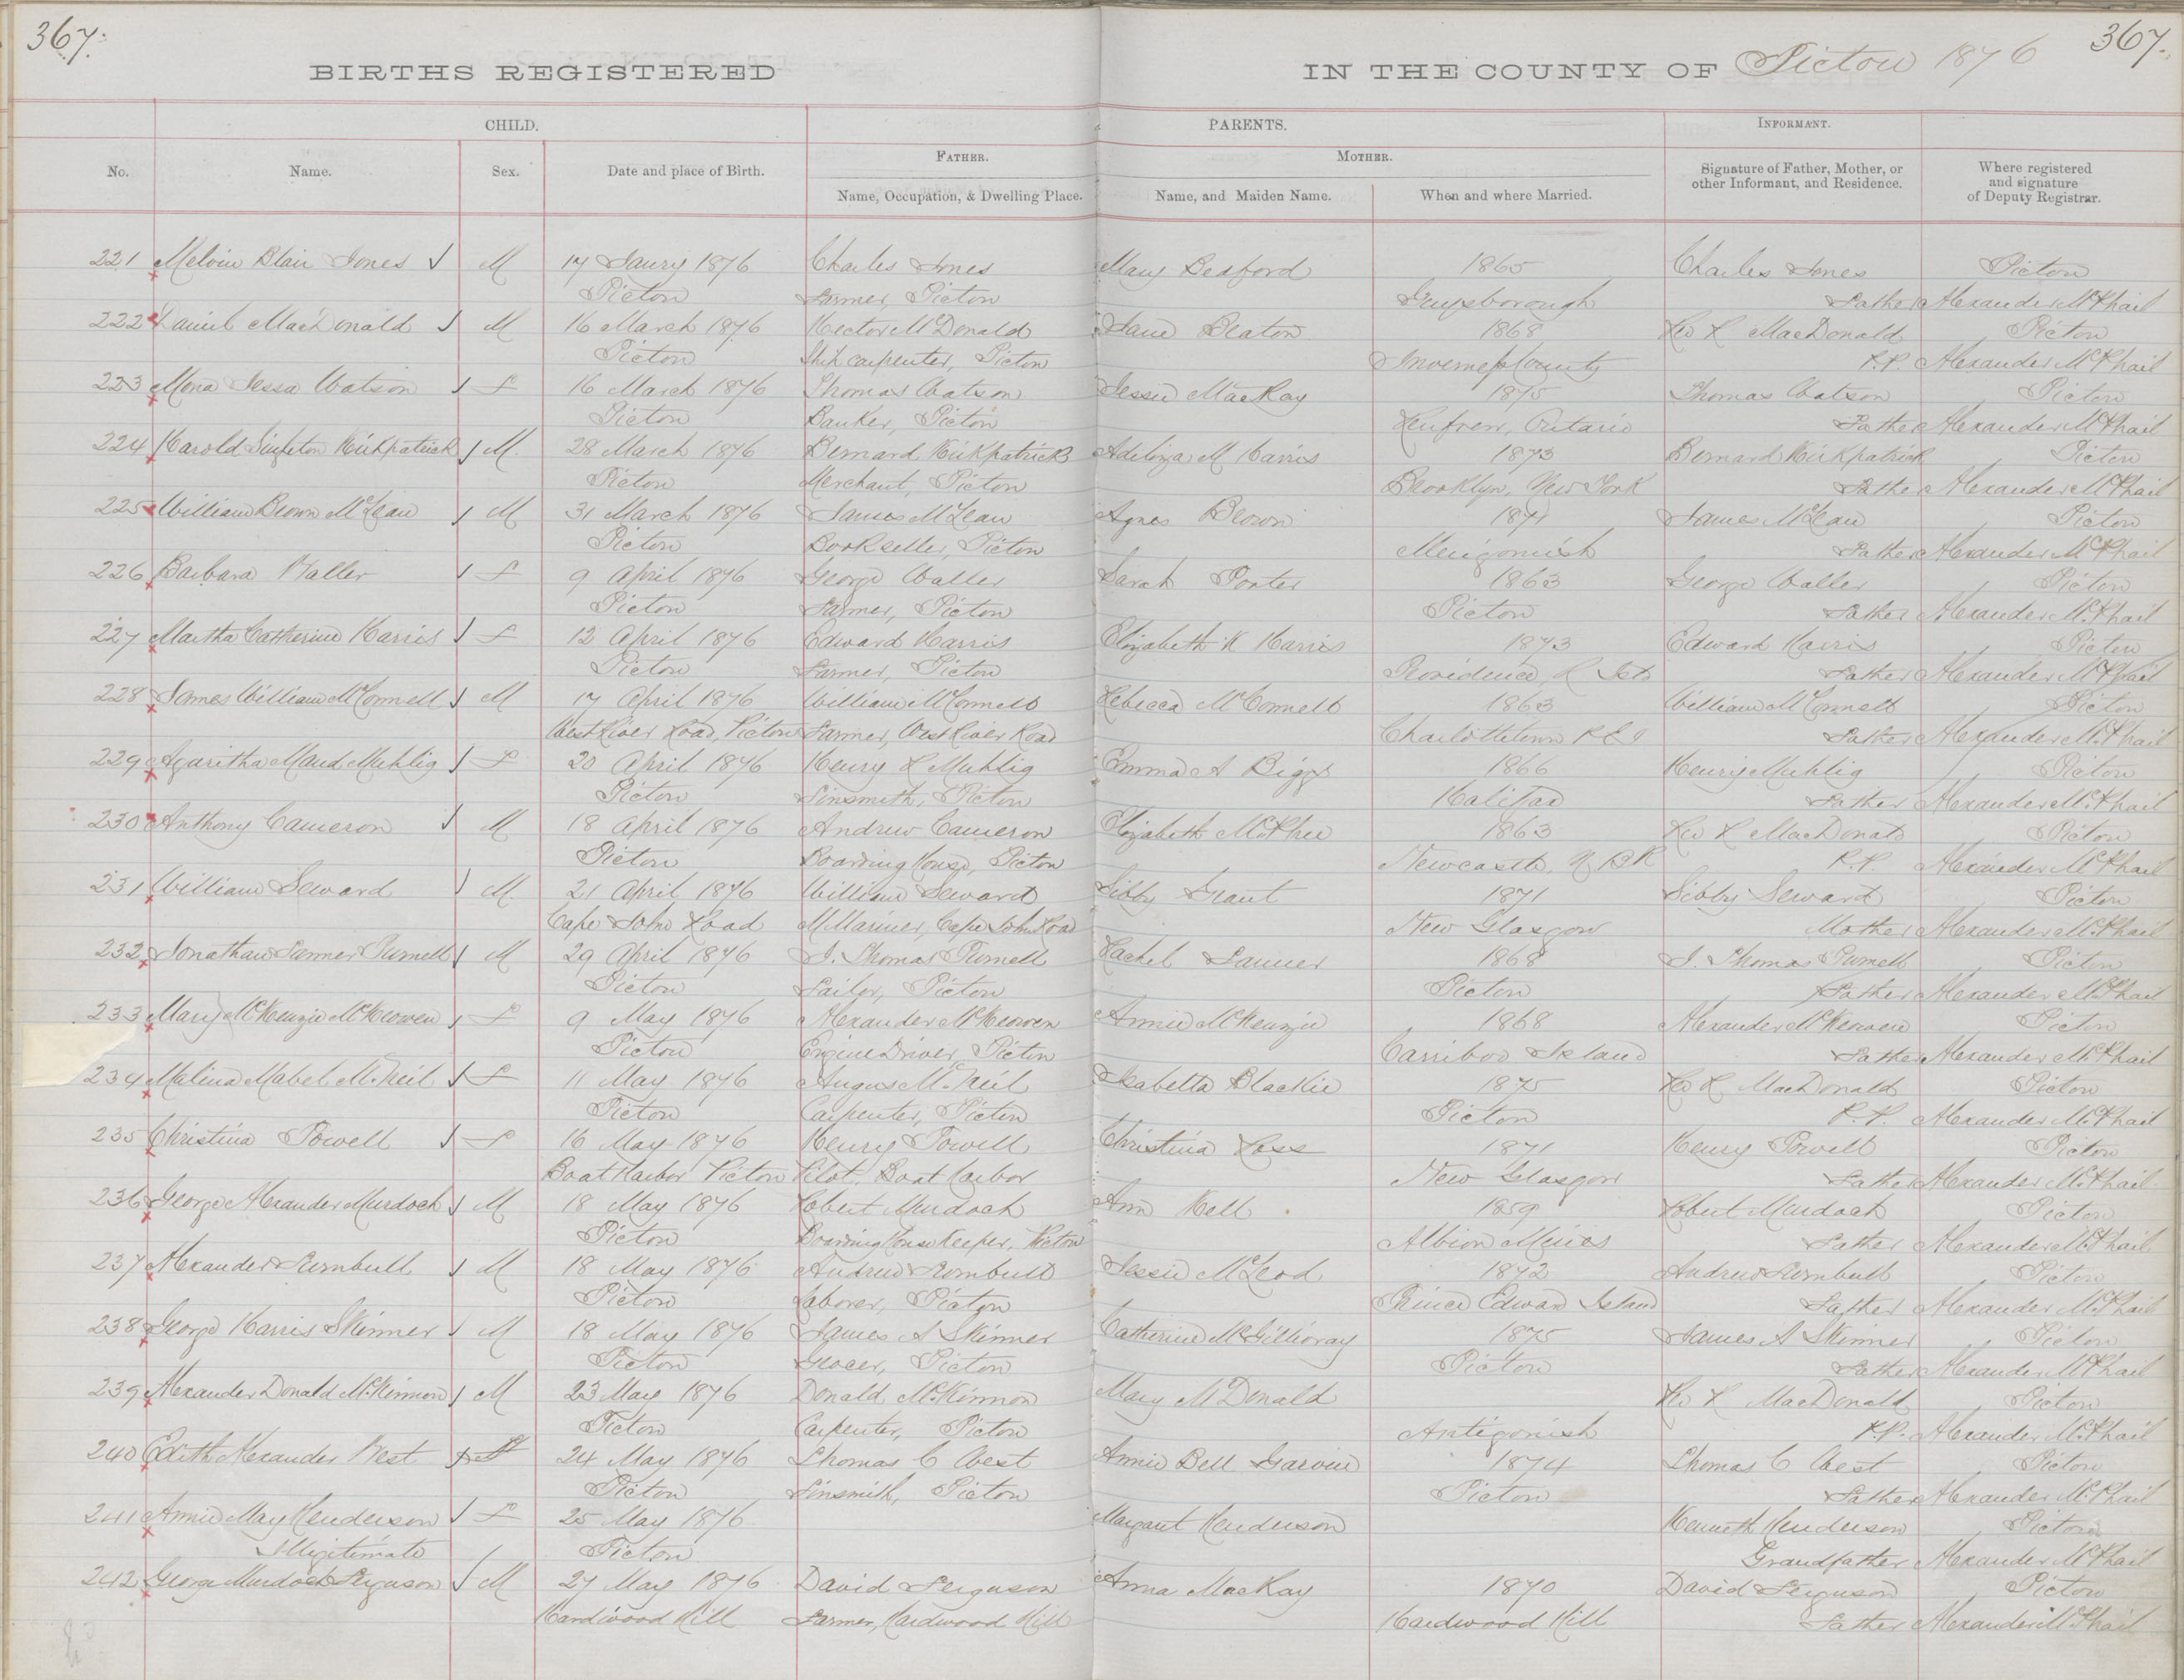 367.
367.
BIRTHS REGISTERED IN THE COUNTY OF Pictou 1876
CHILD. PARENTS. INFORMANT.
FATHER. MOTHER.
No. Name. Sex. Date and place of Birth. Name, Occupation, & Dwelling Place. Name, and Maiden Name. When and where Married. Signature of Father, Mother, or other Informant, and Residence. Where registered and signature of Deputy Registrar.
221 Melvin Blair Jones M 17 Janry 1876 Charles Jones Mary Bedford 1865 Charles Jones Pictou
Pictou Farmer, Pictou Guysborough Father Alexander McPhail
222 Daniel MacDonald M 16 March 1876 Hector McDonald Jane Beaton 1868 Rev R MacDonald Pictou
Pictou Ship carpenter, Pictou Inverness County P.P. Alexander McPhail
223 Mena Jessa Watson F 16 March 1876 Thomas Watson Jessie MacKay 1875 Thomas Watson Pictou
Pictou Banker, Pictou Renfrew, Ontario Father Alexander McPhail
224 Harold Kirkpatrick M. 28 March 1876 Bernard Kirkpatrick M Harris 1873 Bernard Kirkpatrick Pictou
Pictou Merchant, Pictou Brooklyn, New York Father Alexander McPhail
225 William Brown McLean M 31 March 1876 James McLean Agnes Brown 1871 James McLean Pictou
Pictou Bookseller, Pictou Merigomish Father Alexander McPhail
226 Barbara Waller F 9 April 1876 George Waller Sarah Porter 1863 George Waller Pictou
Pictou Farmer, Pictou Pictou Father Alexander McPhail
227 Martha Catherine Harris F 12 April 1876 Edward Harris Elizabeth H Harris 1873 Edward Harris Pictou
Pictou Farmer, Pictou Providence, Father Alexander McPhail
228 James William McConnell M 17 April 1876 William McConnell Rebecca McConnell 1863 William McConnell Pictou
West River Road, Pictou Farmer, West River Road Charlottetown P E I Father Alexander McPhail
229 Agaritha Maud Muhlig F 20 April 1876 Henry L Muhlig Emma A Biggs 1866 Henry Muhlig Pictou
Pictou Tinsmith, Pictou Halifax Father Alexander McPhail
230 Anthony Cameron M 18 April 1876 Andrew Cameron Elizabeth McPhee 1863 Rev R MacDonald Pictou
Pictou Boarding House, Pictou Newcastle, N BK P.P. Alexander McPhail
231 William Seward M. 21 April 1876 William Seward Sibby Grant 1871 Sibby Seward Pictou
Cape John Road M. Mariner, Cape John Road New Glasgow Mother Alexander McPhail
232 Jonathan Tanner Purnell M 29 April 1876 J. Thomas Purnell Rachel Tanner 1868 J. Thomas Purnell Pictou
Pictou Sailor, Pictou Pictou Father Alexander McPhail
233 Mary McKenzie McKeowen F 9 May 1876 Alexander McKeowen Annie McKenzie 1868 Alexander McKeowen Pictou
Pictou Engine Driver, Pictou Carriboo Island Father Alexander McPhail
234 Malina Mabel McNeil F 11 May 1876 Angus McNeil Isabella Blackie 1875 Rev R MacDonald Pictou
Pictou Carpenter, Pictou Pictou P.P. Alexander McPhail
235 Christina Powell F 16 May 1876 Henry Powell Christina Ross 1871 Henry Powell Pictou
Boat Harbor Pictou Pilot, Boat Harbor New Glasgow Father Alexander McPhail
236 George Alexander Murdoch M 18 May 1876 Robert Murdoch Ann Kell 1859 Robert Murdoch Pictou
Pictou Boarding House Keeper, Pictou Albion Mines Father Alexander McPhail
237 Alexander Turnbull M 18 May 1876 Andrew Turnbull Jessie McLeod 1872 Andrew Turnbull Pictou
Pictou Laborer, Pictou Prince Edward Island Father Alexander McPhail
238 George Harris Skinner M 18 May 1876 James A Skinner Catherine McGillivray 1875 James A Skinner Pictou
Pictou Grocer, Pictou Pictou Father Alexander McPhail
239 Alexander Donald McKinnon M 23 May 1876 Donald McKinnon Mary McDonald Rev R MacDonald Pictou
Pictou Carpenter, Pictou Antigonish P.P. Alexander McPhail
240 Edith Alexander West F 24 May 1876 Thomas C West Annie Bell Garvin 1874 Thomas C West Pictou
Pictou Tinsmith, Pictou Pictou Father Alexander McPhail
241 Annie May Henderson F 25 May 1876 Margaret Henderson Kenneth Henderson Pictou
Illegitimate Pictou Grandfather Alexander McPhail
242 George Murdoch Ferguson M 27 May 1876 David Ferguson Anna MacKay 1870 David Ferguson Pictou
Hardwood Hill Farmer, Hardwood Hill Hardwood Hill Father Alexander McPhail